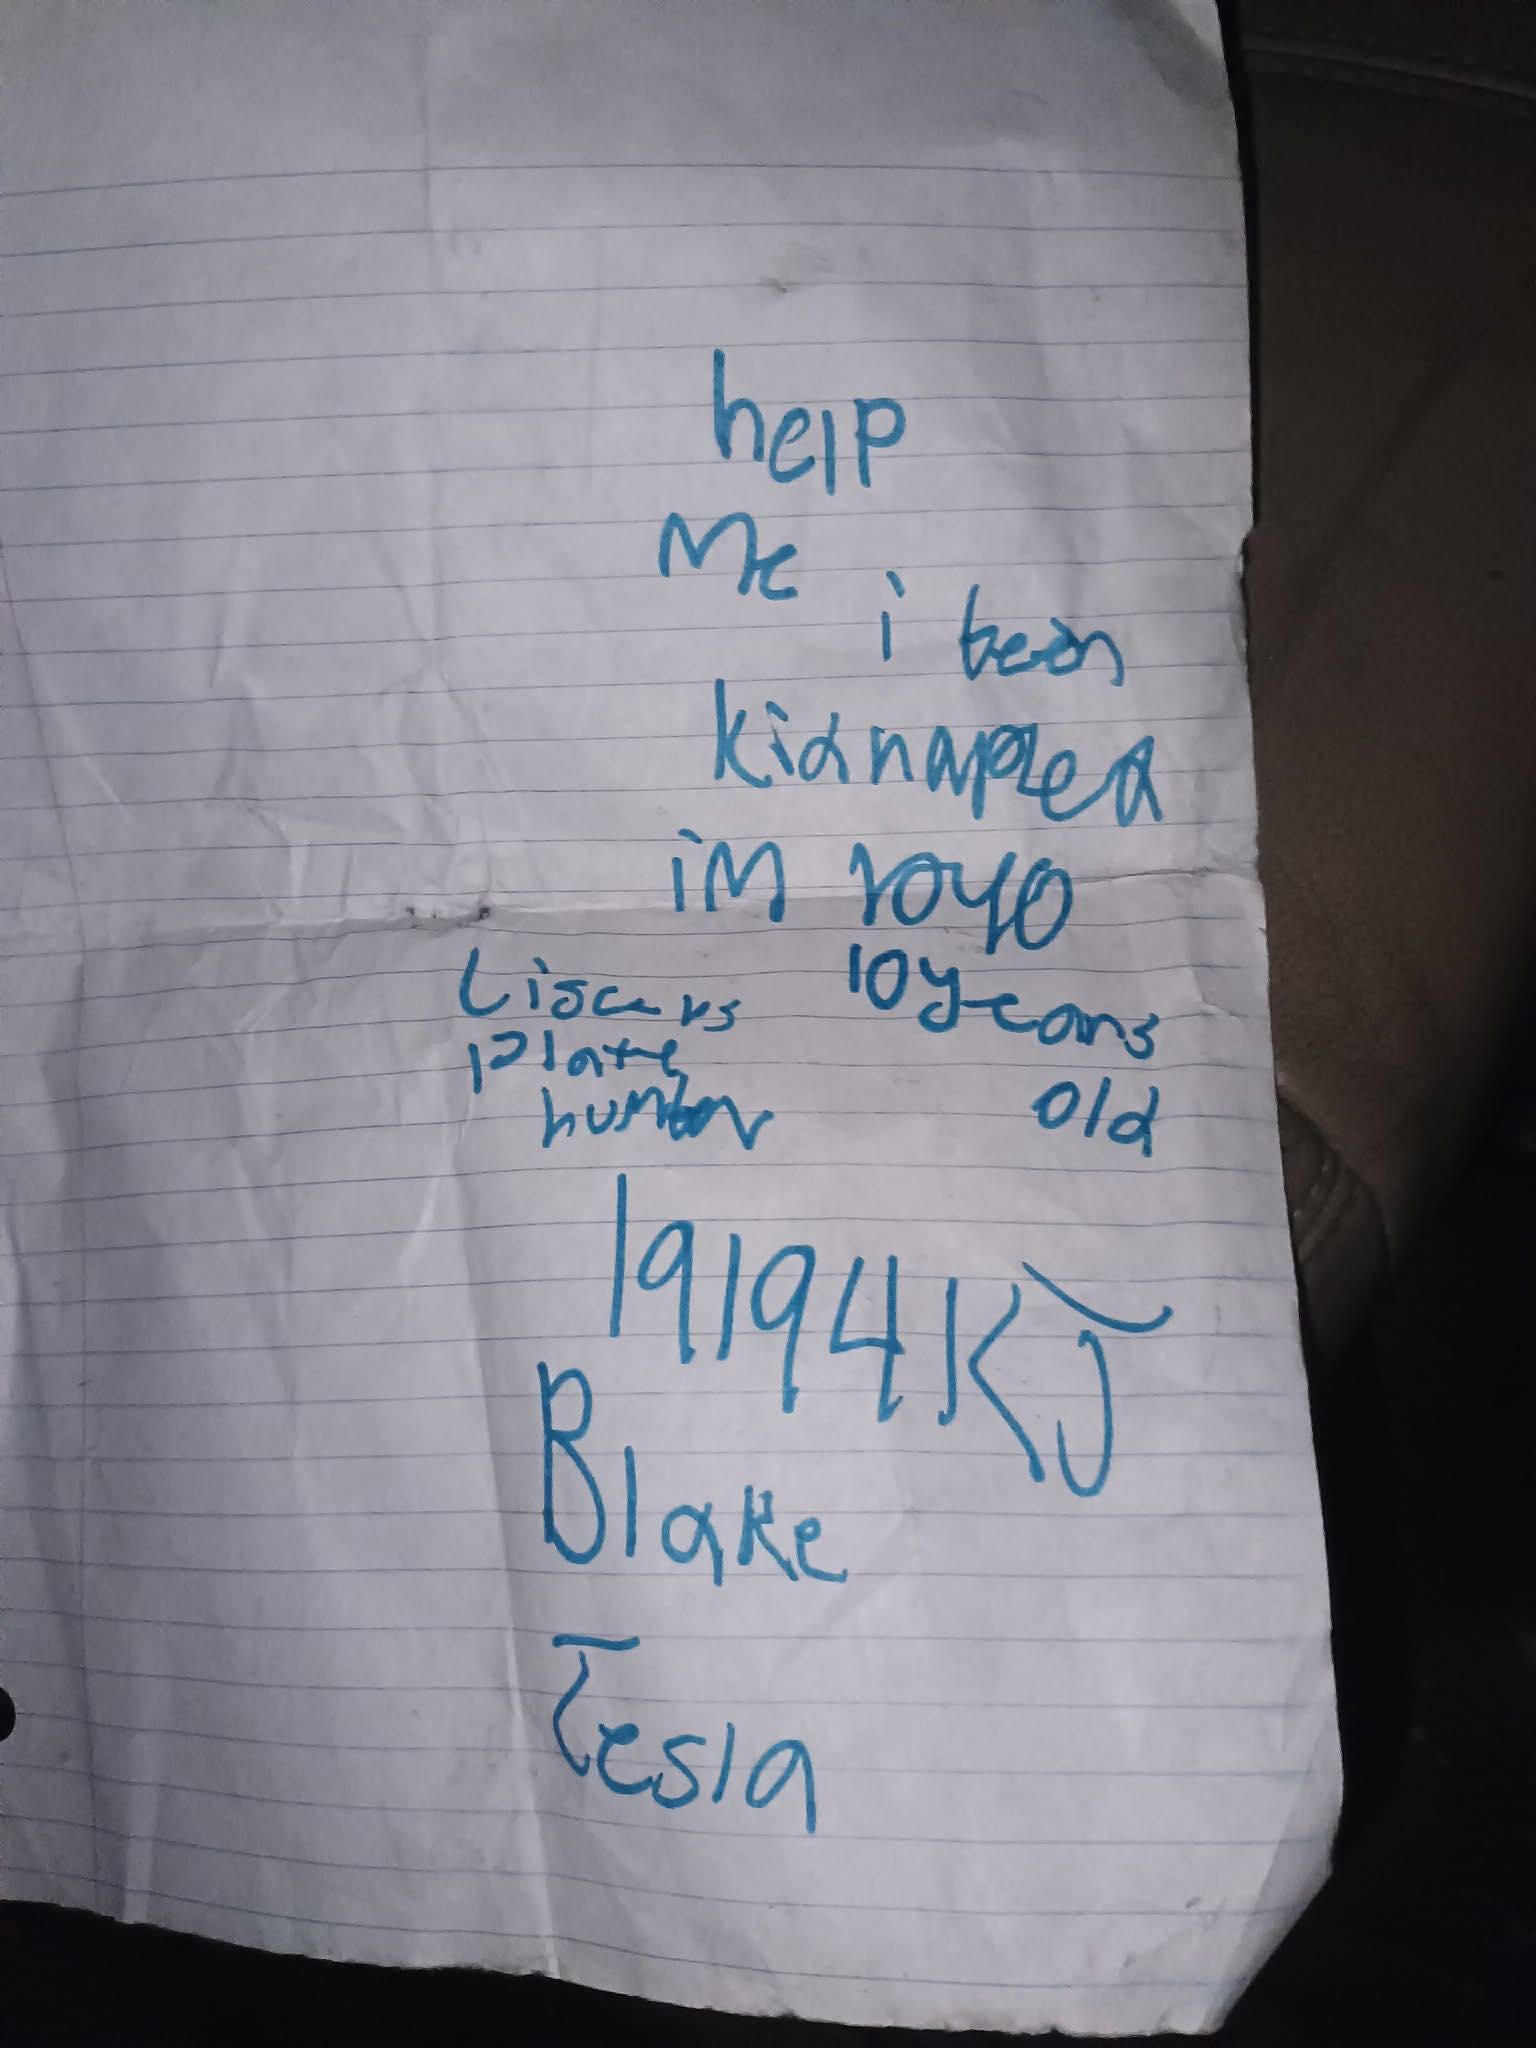 help
me
i been
kidnapped
im yoyo
10 years
old
Liscens
plate
number
19194KJ
Blake
Tesla